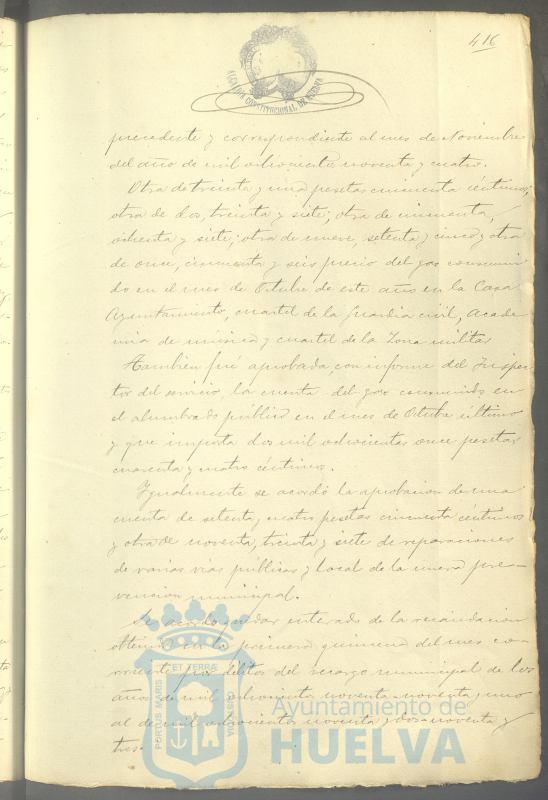 416
ALCALDÍA CONSTITUCIONAL DE HUELVA
precedente y correspondiente al mes de Noviembre
del año de mil ochocientos noventa y cuatro.
Otra de treinta y una pesetas cincuenta céntimos;
otra de dos, treinta y siete; otra de cincuenta,
ochenta y siete; otra de nueve, setenta y cinco y otra
de once, cincuenta y seis precio del gas consumi
do en el mes de Octubre de este año en la Casa
Ayuntamiento, cuartel de la Guardia civil, Acade
mia de música y cuartel de la Zona militar
Tambien fué aprobada, con informe del Inspec
tor del servicio, la cuenta del gas consumido en
el alumbrado público en el mes de Octubre último
y que importa dos mil ochocientas once pesetas
cuarenta y cuatro céntimos.
Igualmente se acordó la aprobacion de una
cuenta de setenta y cuatro pesetas cincuenta céntimos
y otra de noventa, treinta y siete de reparaciones
de varias vias públicas y local de la nueva pre-
vencion municipal.
Se acordó quedar enterado de la recaudacion
obtenida en la primera quincena del mes co-
rriente por debitos del recargo municipal de los
años de mil ochocientos noventa-noventa y uno
al de mil ochocientos noventa y dos-noventa y
tres.
PORTUS MARIS
ET TERRÆ
CUSTODIA
Ayuntamiento de
HUELVA